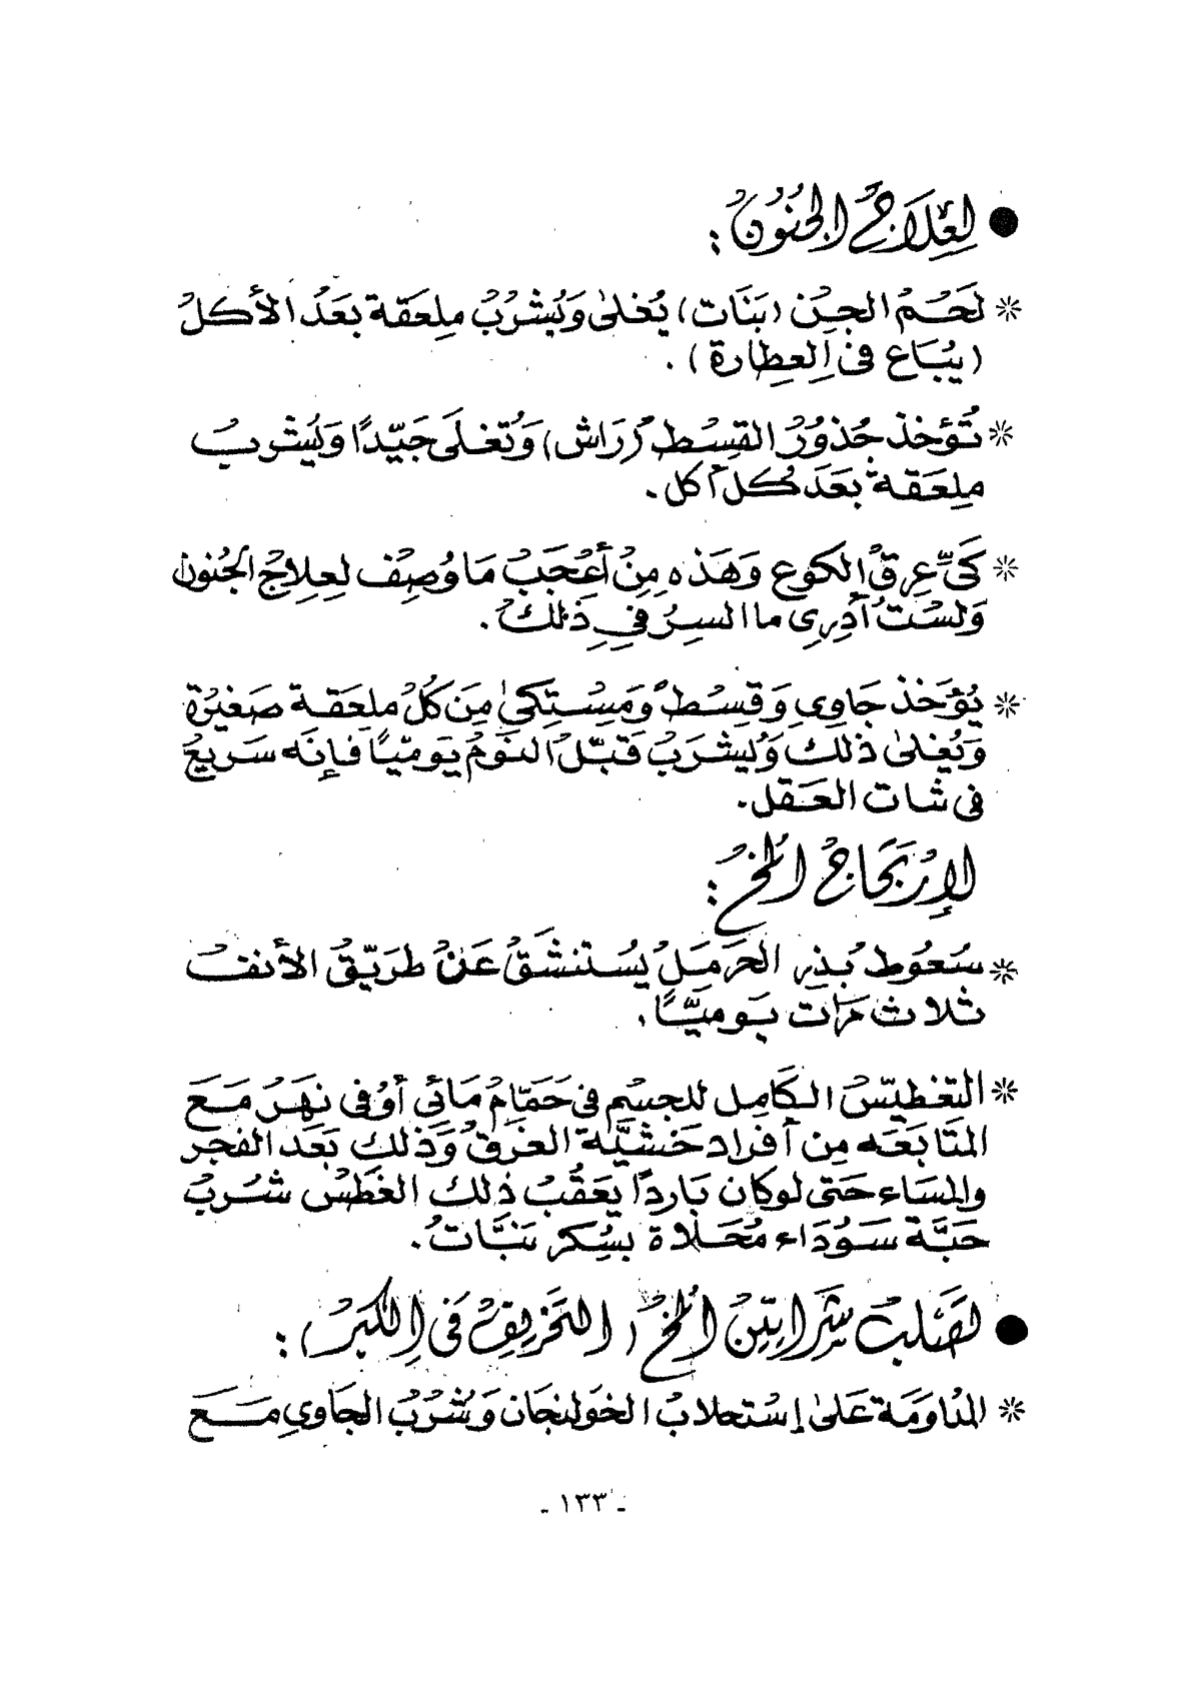 ● لِعِلَاجُ الجُنُونُ :
* لَحُمُ الجِن (نَبَات) يُغلىٰ وَيُشْرُبُ مِلعَقة بعَدُ الأكلُ
(يُبَاع فى العِطارة) .
* تُؤخذ جُذوُرُ القسُط (رَاش) وَتُغلَى جَيّدًا وَيُشْرب
مِلعَقةْ بعَدَ كُل أكل .
* كَىِّ عِرِقْ الكوع وَهَذه مِنُ أعُجَبُ مَا وُصِف لعِلاجُ الجُنون
وَلسُت أدِرِى ما السِرُ فى ذِلكُ .
* يُؤخَذ جَاوىِ وَقِسُط وَمَسُتِكىٰ مِنَ كُلُ ملعَقة صَغيُرة
وَيُغلىٰ ذلك وَليشُرَبُ قبّل النوَمُ يَوميّاً فإنَه سَريعُ
فى شات العَقل .
لإرُتجَاجُ المُخُ :
* سُعُوط بُذر الحَرمَل يُستنشَقُ عَنُ طرَيّقُ الأنف
ثلاث مَرات يَوميًّا .
* التغَطيّسُ الكَامِل للجسُم فى حَمّامُ مَائى أوُ فى نهَرُ مَعَ
المتَابعَه مِن أفراد خَشيَّة الغرَقُ وَذلك بَعَد الفجر
والمسَاء حَتى لوكان بَارداً يعَقُبُ ذلك الغَطسُ شُربُ
حَبَّة سَوُدَاء مُحَلاة بسُكر نبَّاتُ .
● لتصَلب شَرايّينُ المُخُ (التخَريفُ فى الكبَرُ) :
* المُداوَمَة عَلىٰ إسُتحلابُ الخوَلنجَان وَشُرُبُ الجَاوىِ مَعَ
- ١٣٣ -